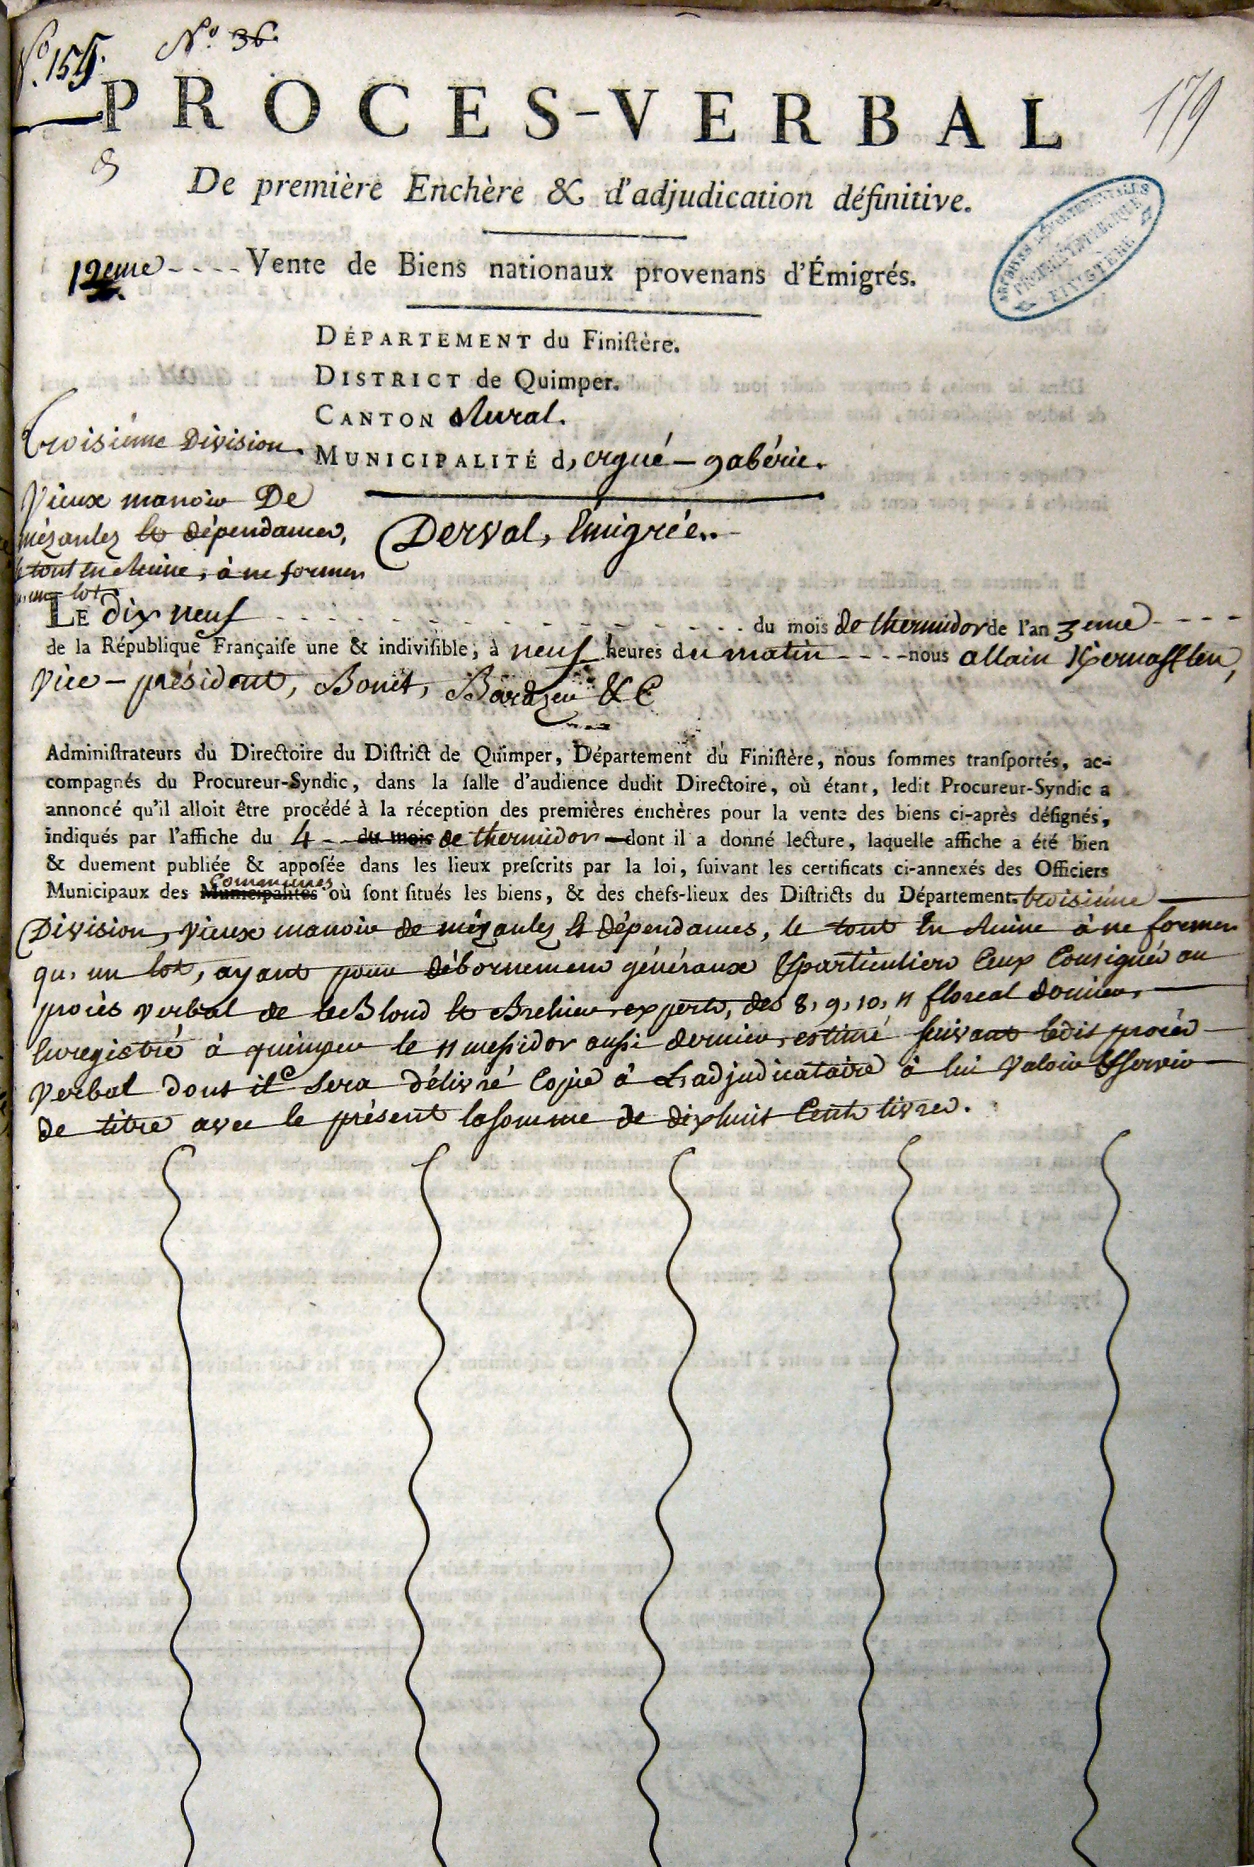 N.° 155.
N.° 36.
179
PROCES-VERBAL
De première Enchère & d'adjudication définitive.
ARCHIVES DÉPARTEMENTALES
FINISTÈRE
12eme - - - - Vente de Biens nationaux provenans d'Émigrés.
DÉPARTEMENT du Finistère.
DISTRICT de Quimper.
CANTON Rural.
MUNICIPALITÉ d, ergué - gabéric.
Troisiéme Division.
Vieux manoir De
mézanlez et dépendances,
le tout en Ruine, à ne former
qu, un lot.
Derval, Émigrée..
LE dix neuf - - - - du mois de thermidor de l'an 3eme - - - -
de la République Française une & indivisible, à neuf heures du matin - - - - nous allain Kernafflen,
Vice - président, Bonet, Bardzeu & C
Administrateurs du Directoire du District de Quimper, Département du Finistère, nous sommes transportés, ac-
compagnés du Procureur-Syndic, dans la salle d'audience dudit Directoire, où étant, ledit Procureur-Syndic a
annoncé qu'il alloit être procédé à la réception des premières enchères pour la vente des biens ci-après désignés,
indiqués par l'affiche du 4 - - du mois de thermidor - dont il a donné lecture, laquelle affiche a été bien
& duement publiée & apposée dans les lieux prescrits par la loi, suivant les certificats ci-annexés des Officiers
Municipaux des Municipalités Communes où sont situés les biens, & des chefs-lieux des Districts du Département. troisiéme
Division, vieux manoir de mézanlez et dépendances, le tout en Ruine à ne former
qu, un lot, ayant pour débornemens généraux & particuliers Ceux Consignés au
procès verbal de le Blond et Brehier, experts, des 8, 9, 10, 11 floreal dernier,
Enregistré à quimper le 11 messidor aussi dernier, estimé suivant ledit procès
Verbal dont il Sera délivré Copie à L'adjudicataire à lui Valoir & servir
de titre avec le présent la somme de dixhuit Cents livres.